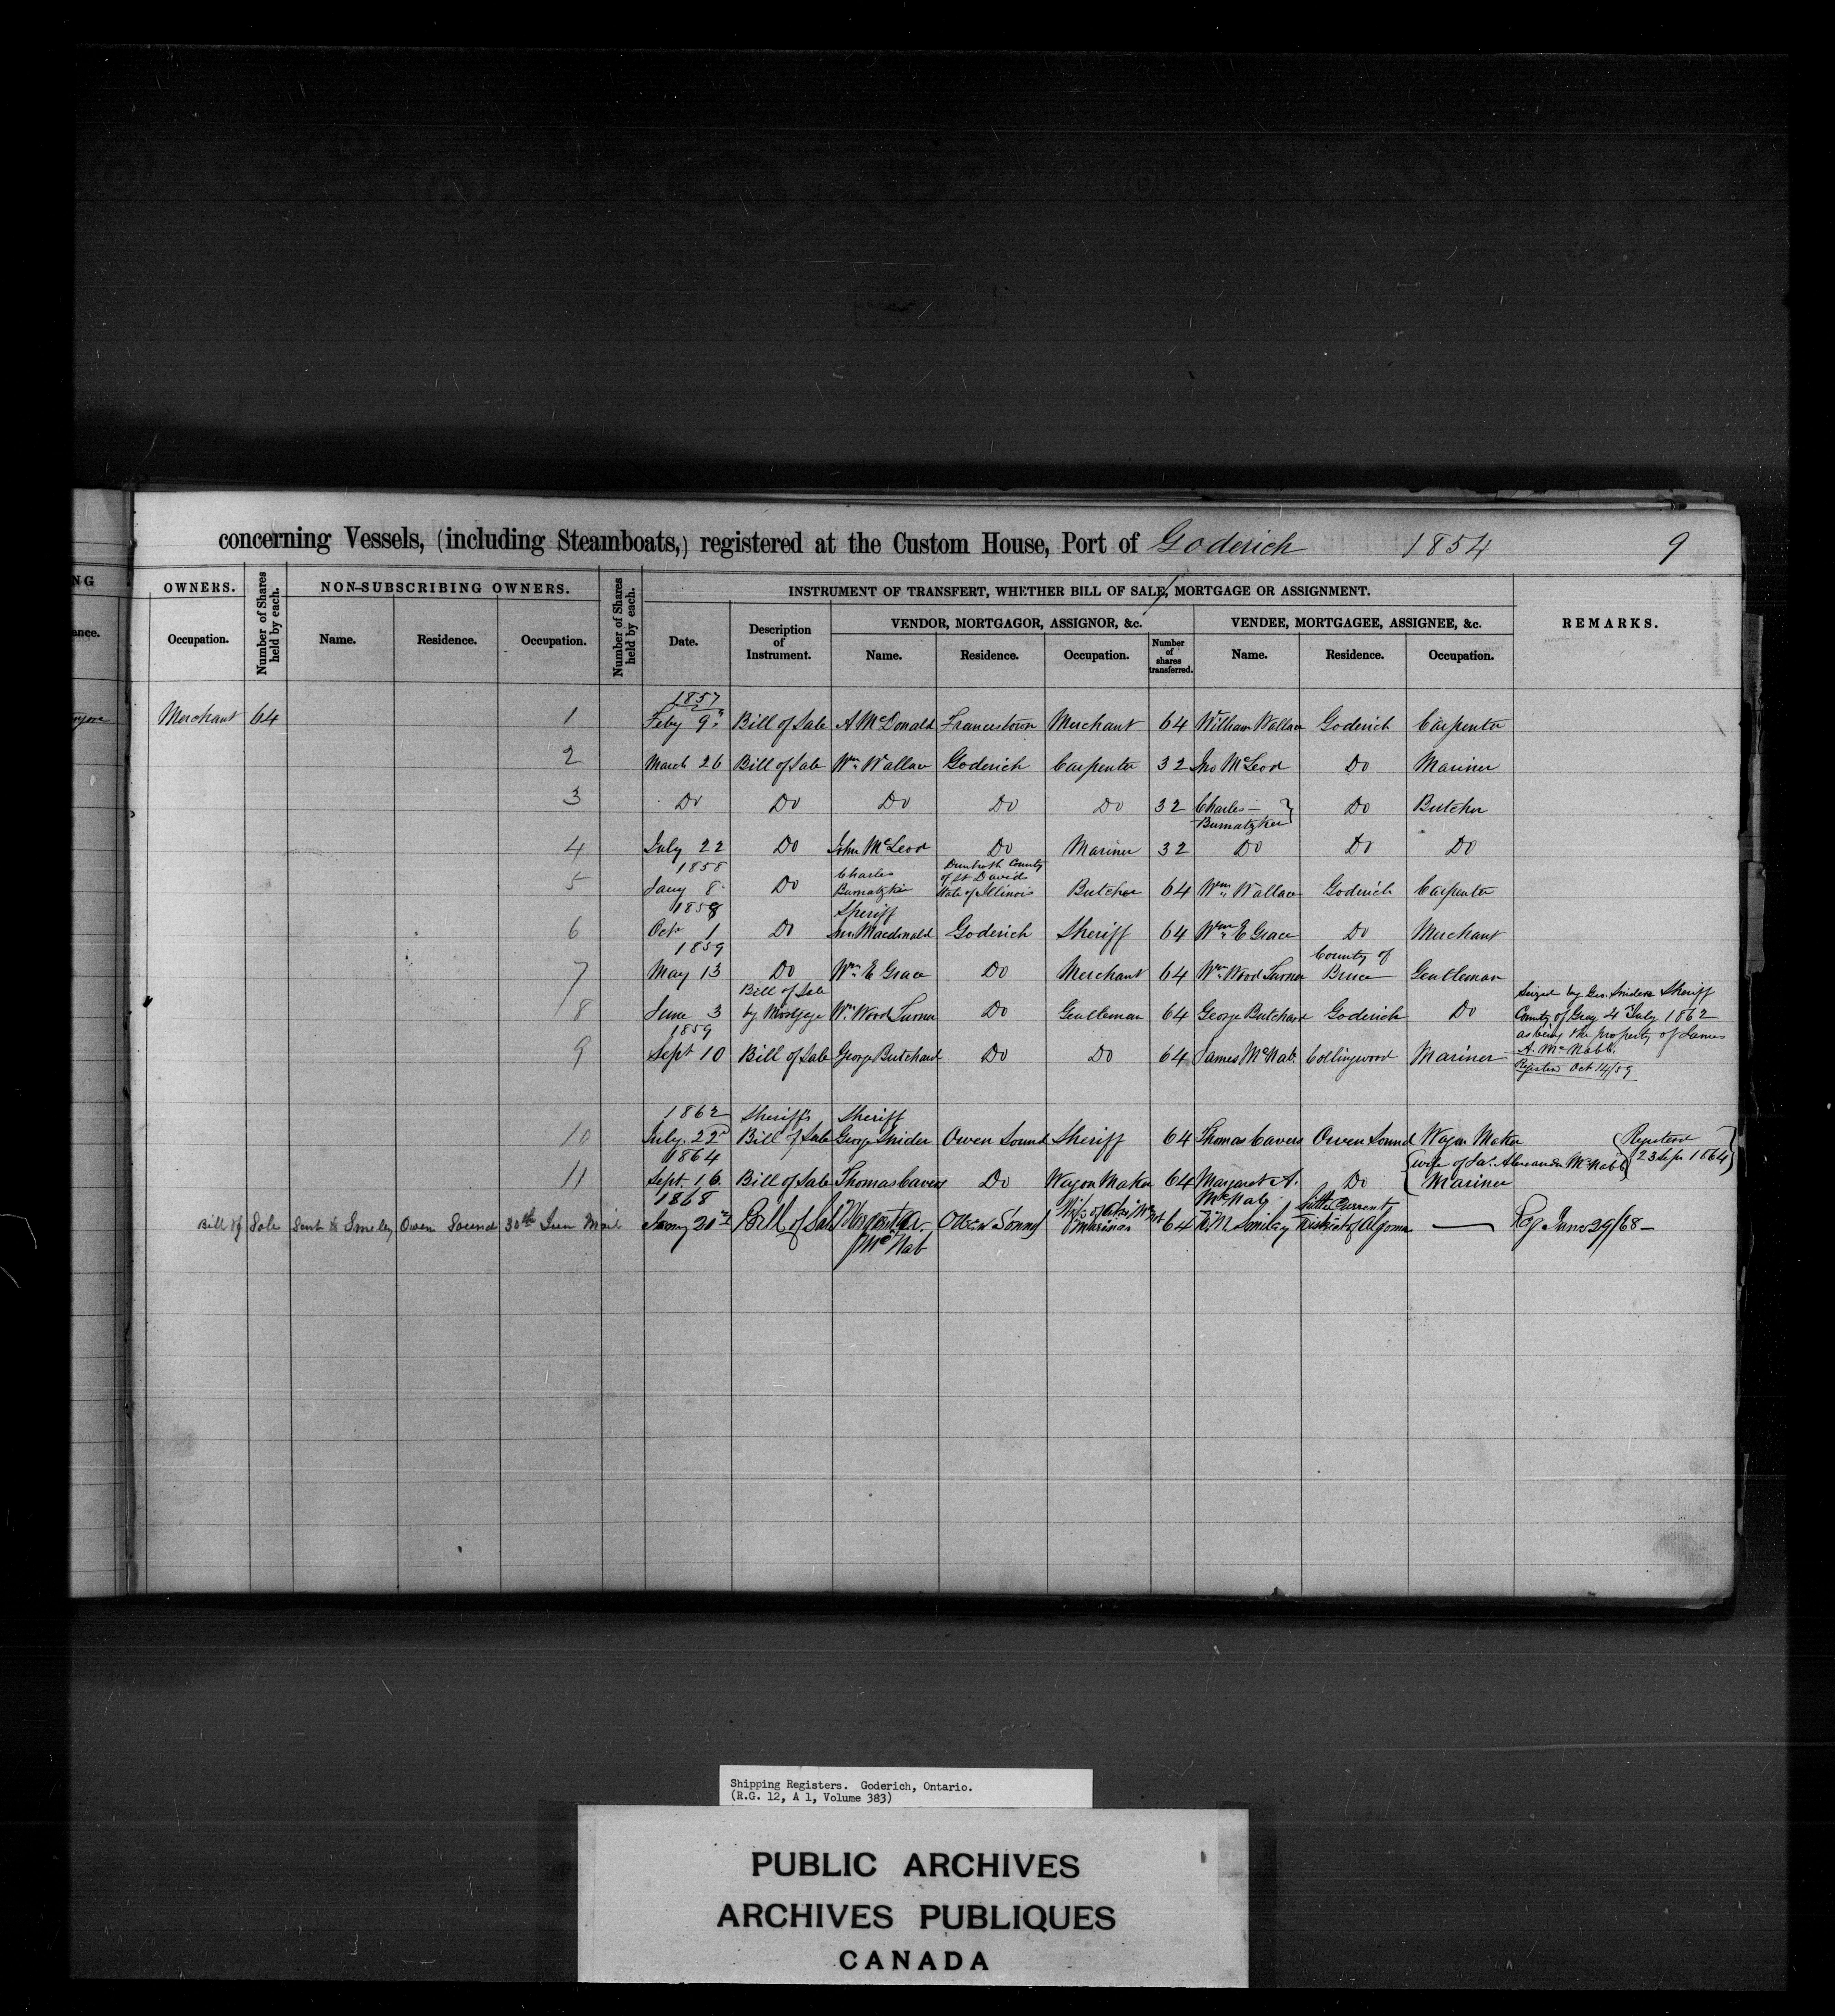 concerning Vessels, (including Steamboats,) registered at the Custom House, Port of Goderich 1854 9
OWNERS. Number of Shares held by each. NON-SUBSCRIBING OWNERS. Number of Shares held by each. INSTRUMENT OF TRANSFERT, WHETHER BILL OF SALE, MORTGAGE OR ASSIGNMENT. REMARKS.
VENDOR, MORTGAGOR, ASSIGNOR, &c. VENDEE, MORTGAGEE, ASSIGNEE, &c.
Occupation. Name. Residence. Occupation. Date. Description of Instrument. Name. Residence. Occupation. Number of shares transferred. Name. Residence. Occupation.
1857
Merchant 64 1 Feby 9th Bill of Sale A McDonald Francestown Merchant 64 William Wallace Goderich Carpenter
2 March 26 Bill of Sale Wm Wallace Goderich Carpenter 32 Jno McLeod Do Mariner
3 Do Do Do Do Do 32 Charles Burnatzker Do Butcher
4 July 22 Do John McLeod Do Mariner 32 Do Do Do
1858
5 Jany 8 Do Charles Burnatzkie County of St Davids State of Illinois Butcher 64 Wm Wallace Goderich Carpenter
1858 Sheriff
6 Octr 1 Do Jno Macdonald Goderich Sheriff 64 Wm E Grace Do Merchant
1859
7 May 13 Do Wm E Grace Do Merchant 64 Wm Wood Turner County of Bruce Gentleman
8 June 3 Bill of Sale by Mortgage Wm Wood Turner Do Gentleman 64 George Butchard Goderich Do
1859
9 Sept 10 Bill of Sale George Butchard Do Do 64 James McNab Collingwood Mariner
Seized by Geo. Snider Sheriff
County of Grey 4th July 1862
as being the property of James
A. McNabb.
Register Oct 14/59
1862 Sheriff's Sheriff
10 July 22d Bill of Sale George Snider Owen Sound Sheriff 64 Thomas Cavers Owen Sound Wagon Maker
1864
11 Sept. 16 Bill of Sale Thomas Cavers Do Wagon Maker 64 Margaret A. McNab Do wife of Jas. Alexander McNabb Mariner Registered 23 Sepr 1864
1868
Bill of Sale Sent to Smiley Owen Sound 30th Mail Jany 20 Bill of Sale Margaret A. McNab Owen Sound Wife of Mariner 64 Smiley Little Current District of Algoma — Reg Jany 29/68 —
Shipping Registers. Goderich, Ontario.
(R.G. 12, A 1, Volume 383)
PUBLIC ARCHIVES
ARCHIVES PUBLIQUES
CANADA